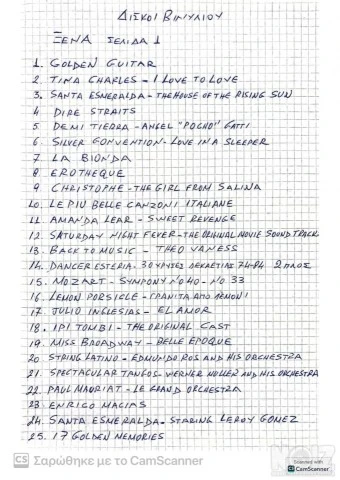 ΔΙΣΚΟΙ ΒΙΝΥΛΙΟΥ
ΞΕΝΑ ΣΕΛΙΔΑ 1
1. GOLDEN GUITAR
2. TINA CHARLES - I LOVE TO LOVE
3. SANTA ESMERALDA - THE HOUSE OF THE RISING SUN
4 DIRE STRAITS
5 DEMI TIERRA - ANGEL "POCHO" GATTI
6. SILVER CONVENTION - LOVE IN A SLEEPER
7. LA BIONDA
8 EROTHEQUE
9 CHRISTOPHE - THE GIRL FROM SALINA
10. LE PIU BELLE CANZONI ITALIANE
11 AMANDA LEAR - SWEET REVENGE
12. SATURDAY NIGHT FEVER - THE ORIGINAL MOVIE SOUND TRACK
13. BACK TO MUSIC - THEO VANESS
14. DANCERESTERIA - 30 ΧΡΥΣΕΣ ΔΕΚΑΕΤΙΑΣ 74-84 2ΠΛΟΣ
15. MOZART - SYMPONY Nº 40 - Nº 33
16. LEMON POPSICLE - ΓΡΑΝΙΤΑ ΑΠΟ ΛΕΜΟΝΙ
17. JULIO INGLESIAS - EL AMOR
18. IPI TOMBI - THE ORIGINAL CAST
19. MISS BROADWAY - BELLE EPOQUE
20 STRING LATINO - EDMUNDO ROS AND HIS ORCHESTRA
21. SPECTACULAR TANGOS - WERNER MÜLLER AND HIS ORCHESTRA
22. PAUL MAURIAT - LE GRAND ORCHESTRA
23 ENRICO MACIAS
24. SANTA ESMERALDA - STARING LEROY GOMEZ
25. 17 GOLDEN MEMORIES
CS Σαρώθηκε με το CamScanner
Scanned with
CS CamScanner